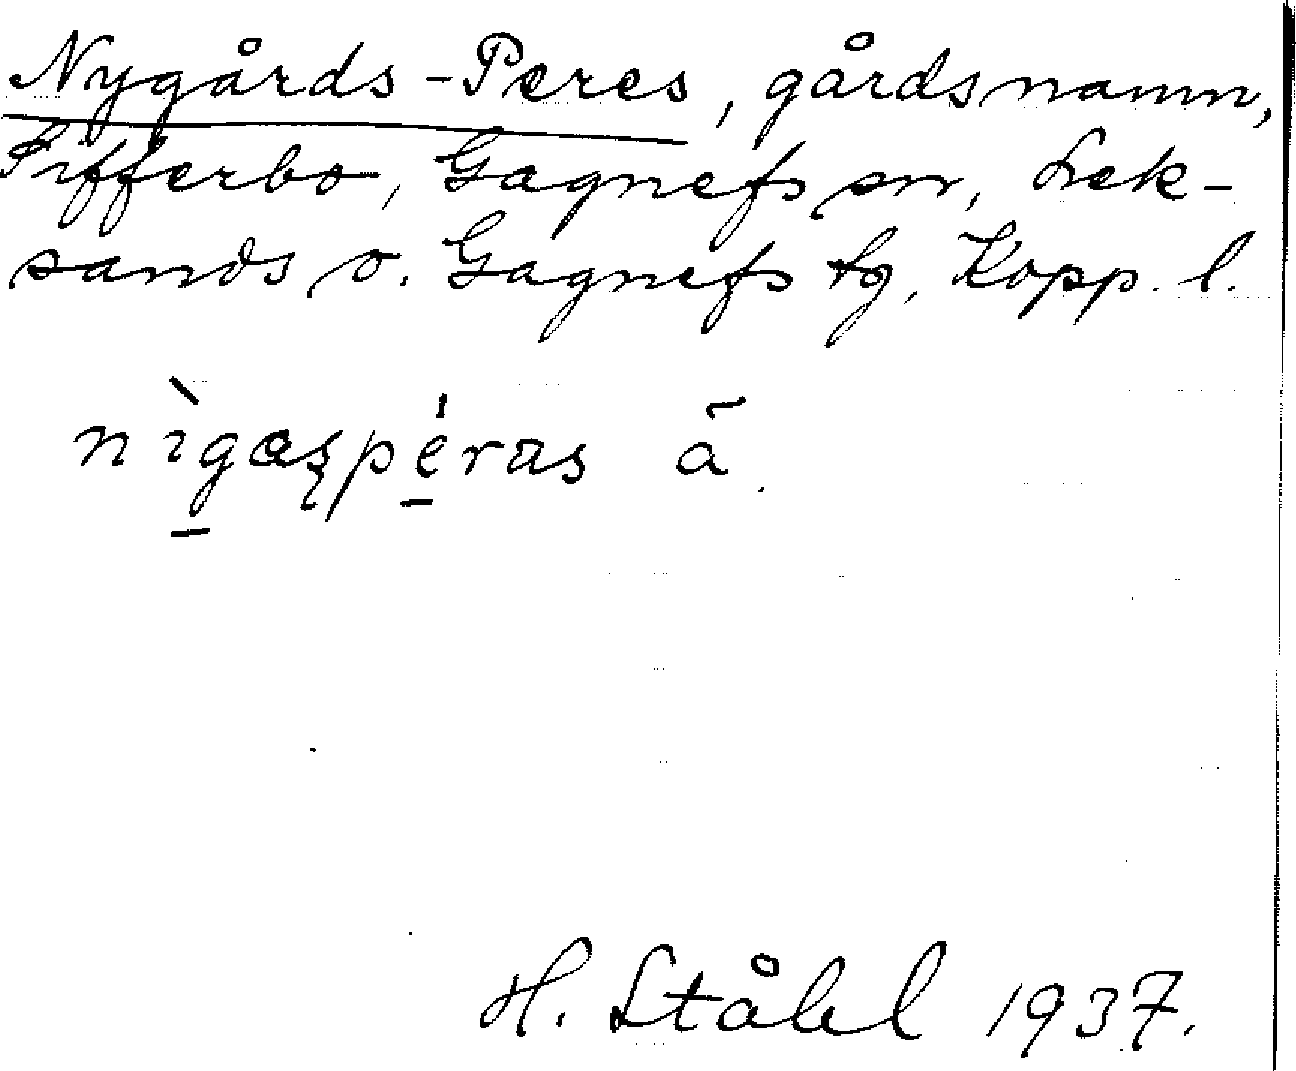 Nygårds-Peres, gårdsnamn,
Sifferbo, Gagnefs sn, Lek-
sands o. Gagnefs tg, Kopp. l.
nìgaʂpéras ā.
H. Ståhl 1937.